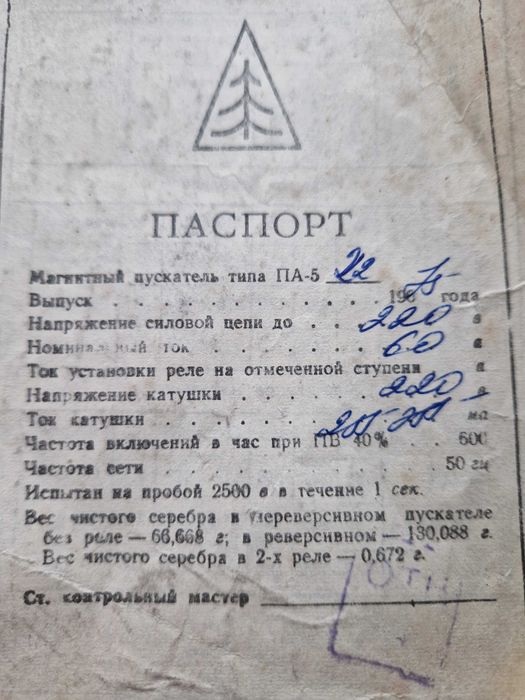 ПАСПОРТ
Магнитный пускатель типа ПА-5 22
Выпуск . . . . . . . . . . . 196 75 года
Напряжение силовой цепи до . . 220 в
Номинальный ток . . . . . . . 60 а
Ток установки реле на отмеченной ступени а
Напряжение катушки . . . . . 220 в
Ток катушки . . . . . . . ма
Частота включений в час при ПВ 40% . 600
Частота сети . . . . . . . . . . 50 гц
Испытан на пробой 2500 в в течение 1 сек.
Вес чистого серебра в нереверсивном пускателе
без реле — 66,668 г; в реверсивном — 130,088 г.
Вес чистого серебра в 2-х реле — 0,672 г.
Ст. контрольный мастер